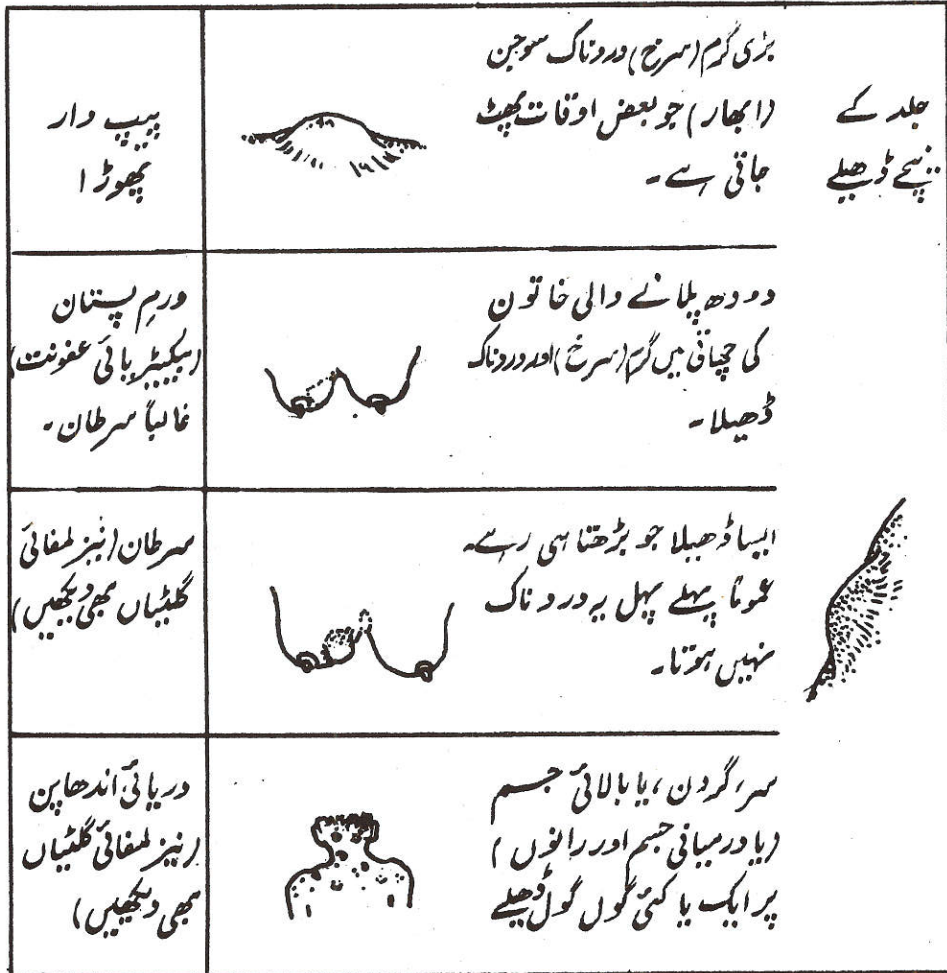 جلد کے
نیچے ڈھیلے
بڑی گرم (سرخ) دردناک سوجن
(ابھار) جو بعض اوقات پھٹ
جاتی ہے۔
پیپ دار
پھوڑا
دودھ پلانے والی خاتون
کی چھاتی میں گرم (سرخ) اور دردناک
ڈھیلا۔
ورمِ پستان
(بیکٹیریائی عفونت)
غالباً سرطان۔
ایسا ڈھیلا جو بڑھتا ہی رہے۔
عموماً پہلے پہل یہ دردناک
نہیں ہوتا۔
سرطان (نیز لمفائی
گلٹیاں بھی دیکھیں)
سر، گردن، یا بالائی جسم
(یا درمیانی جسم اور رانوں)
پر ایک یا کئی گول گول ڈھیلے
دریائی اندھاپن
(نیز لمفائی گلٹیاں
بھی دیکھیں)